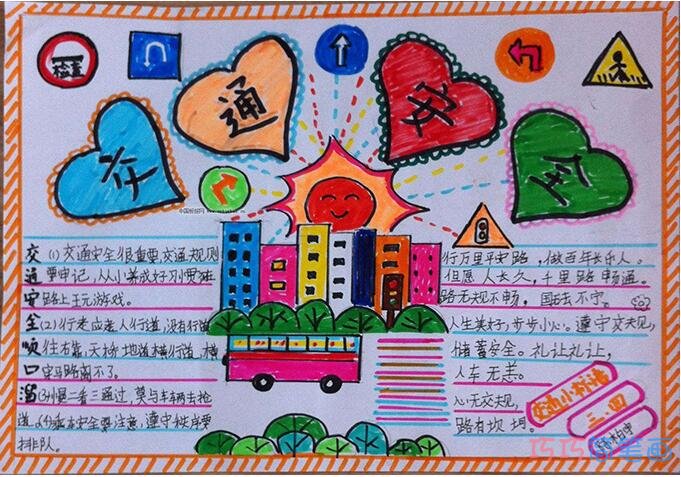 检查
交通安全
交通安全顺口溜
(1)交通安全很重要,交通规则
要牢记,从小养成好习惯,不在
路上玩游戏。
(2)行走应走人行道,没有行道
往右靠,天桥地道横行道,横
穿马路闹不了。
(3)慢二看三通过,莫与车辆去抢
道。(4)乘车安全要注意,遵守秩序要
排队。
行万里平安路,做百年长乐人。
但愿人长久,千里路畅通。
路无规不畅,国无法不宁。
人生美好,步步小心。遵守交规,
储蓄安全。礼让礼让,
人车无恙。
心无交规,
路有坎坷。
交通小标语
三、四